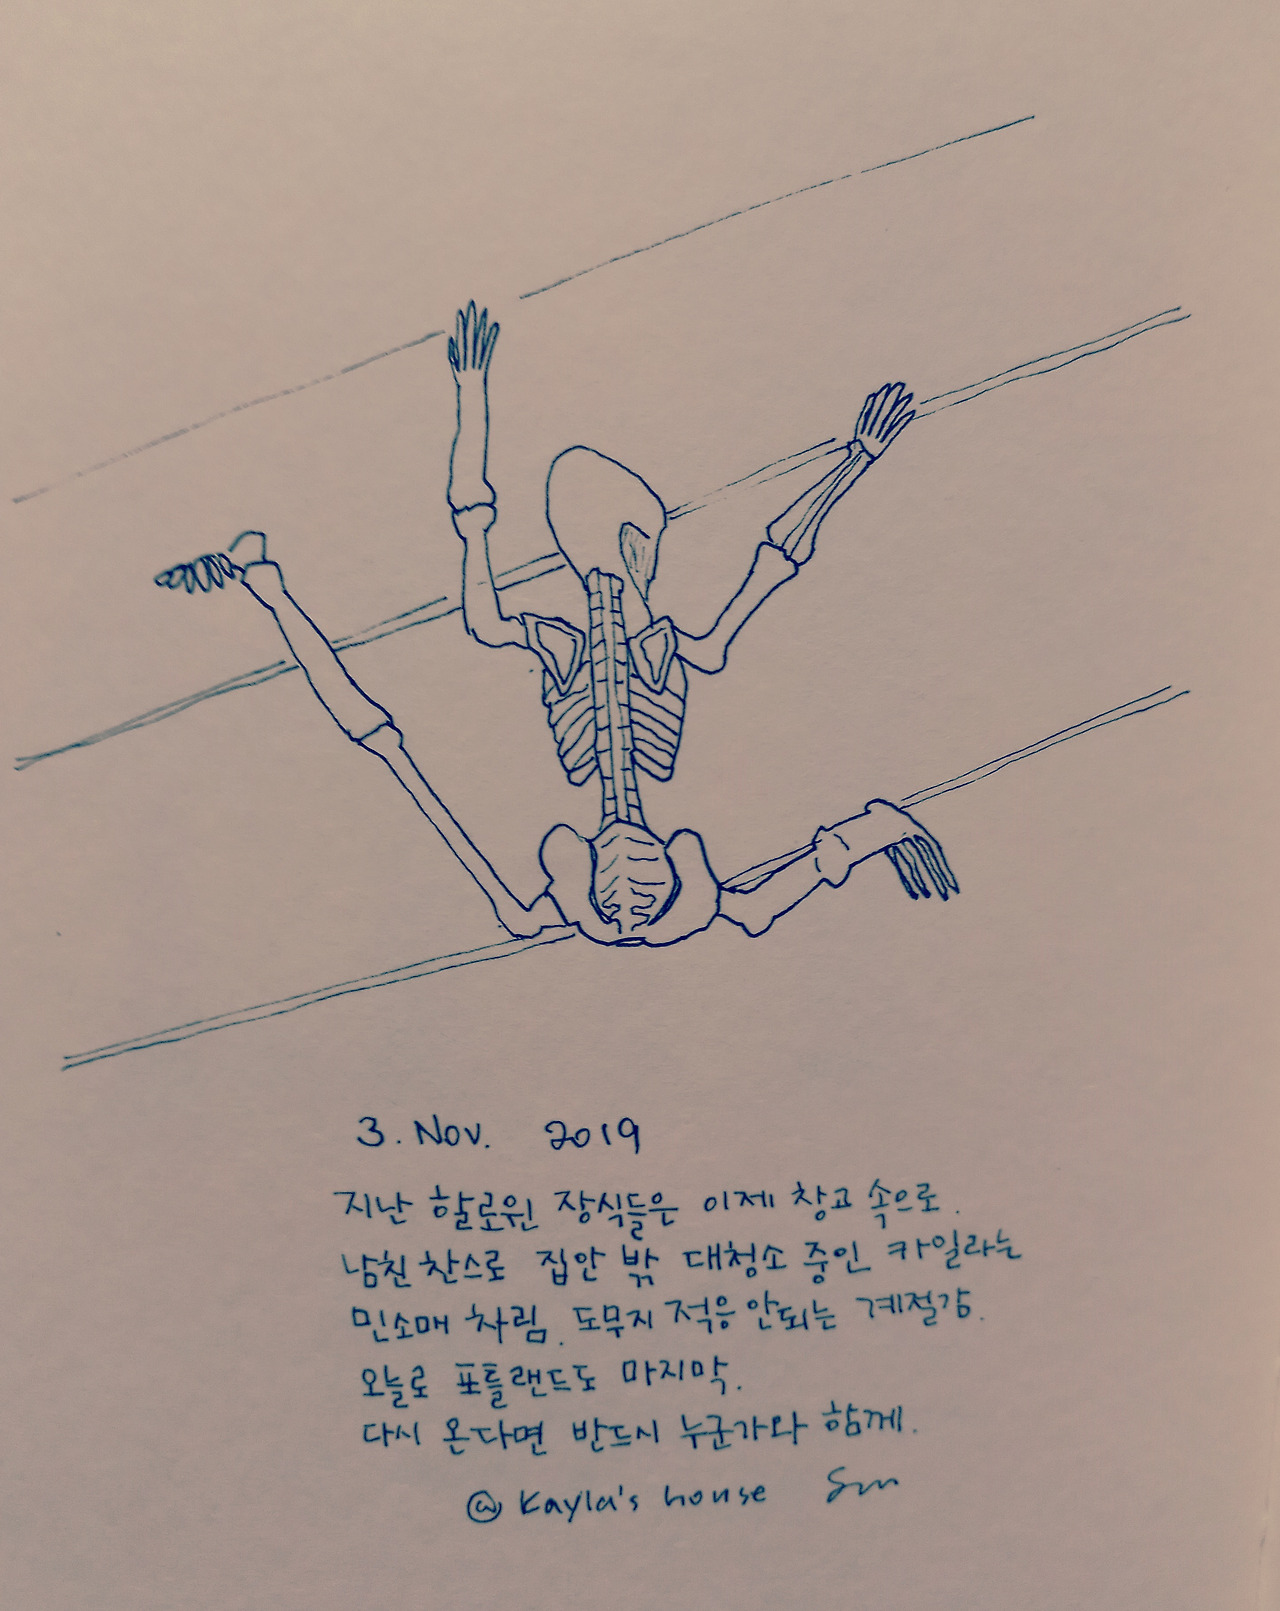 3. Nov. 2019
지난 할로윈 장식들은 이제 창고 속으로.
남친 찬스로 집안 밖 대청소 중인 카일라는
민소매 차림. 도무지 적응 안되는 계절감.
오늘로 포틀랜드도 마지막.
다시 온다면 반드시 누군가와 함께.
@ Kayla's house